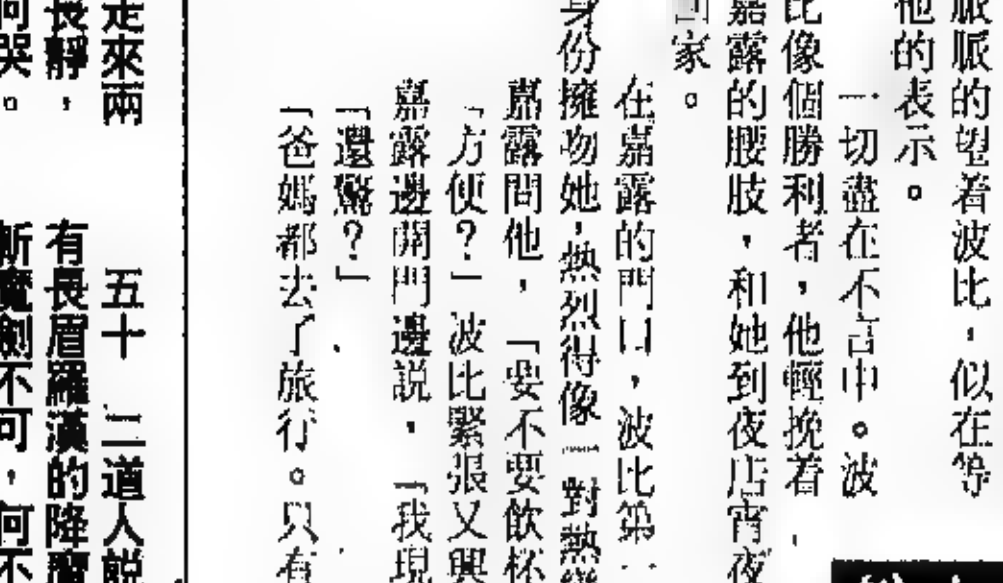 脈脈的望着波比，似在等
他的表示。
一切盡在不言中。波
比像個勝利者，他輕挽着
嘉露的腰肢，和她到夜店宵夜
回家。
在嘉露的門口，波比第一
身份擁吻她，熱烈得像一對熱戀
嘉露問他，「要不要飲杯
「方便？」波比緊張又興
嘉露邊開門邊説，「我現
「還驚？」
「爸媽都去了旅行。只有
五十　二道人説
走來兩
有長眉羅漢的降魔
長靜，
斬魔劍不可，何不
何哭。